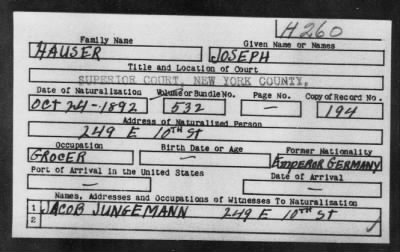 H260
Family Name Given Name or Names
HAUSER JOSEPH
Title and Location of Court
SUPERIOR COURT, NEW YORK COUNTY.
Date of Naturalization Volume or Bundle No. Page No. Copy of Record No.
OCT 24-1892 532 — 194
Address of Naturalized Person
249 E 10TH ST
Occupation Birth Date or Age Former Nationality
GROCER — EMPEROR GERMANY
Port of Arrival in the United States Date of Arrival
— —
Names, Addresses and Occupations of Witnesses To Naturalization
1 JACOB JUNGEMANN 249 E 10TH ST
2